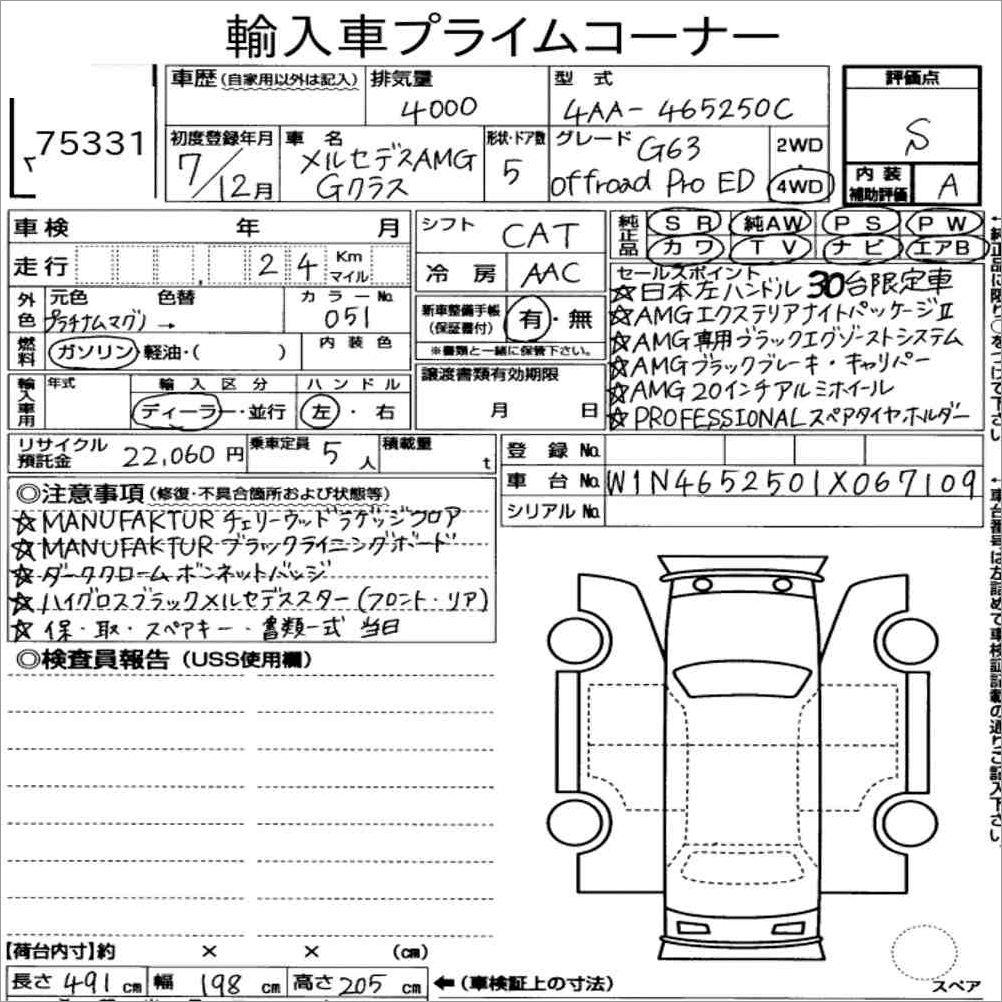 輸入車プライムコーナー
75331
車歴 (自家用以外は記入)
排気量
4000
型式
4AA-465250C
評価点
S
初度登録年月
7/12月
車名
メルセデスAMG
Gクラス
形状・ドア数
5
グレード
G63
offroad Pro ED
2WD
4WD
内装
補助評価
A
車検 年 月
走行 24 Km
マイル
シフト
CAT
冷房
AAC
純正品
SR 純AW PS PW
カワ TV ナビ エアB
外色
元色 色替
プラチナムマグノ→
カラーNo.
051
燃料
ガソリン・軽油・( )
内装色
新車整備手帳
(保証書付)
有・無
※書類と一緒に保管下さい。
セールスポイント
☆日本左ハンドル 30台限定車
☆AMGエクステリアナイトパッケージⅡ
☆AMG専用ブラックエグゾーストシステム
☆AMGブラックブレーキ・キャリパー
☆AMG20インチアルミホイール
☆PROFESSIONALスペアタイヤホルダー
輸入車用
年式
輸入区分
ディーラー・並行
ハンドル
左・右
譲渡書類有効期限
月 日
リサイクル
預託金
22,060円
乗車定員
5人
積載量
t
登録No.
車台No. W1N4652501X067109
シリアルNo.
◎注意事項 (修復・不具合箇所および状態等)
☆MANUFAKTURチェリーウッドラゲッジフロア
☆MANUFAKTURブラックライニングボード
☆ダーククロームボンネットバッジ
☆ハイグロスブラックメルセデススター(フロント・リア)
☆保・取・スペアキー・書類一式 当日
◎検査員報告 (USS使用欄)
【荷台内寸】約 × × (cm)
長さ491cm 幅198cm 高さ205cm ←(車検証上の寸法)
スペア
←純正品に限り○をつけて下さい
←車台番号は左詰めで車検証記載の通りご記入下さい